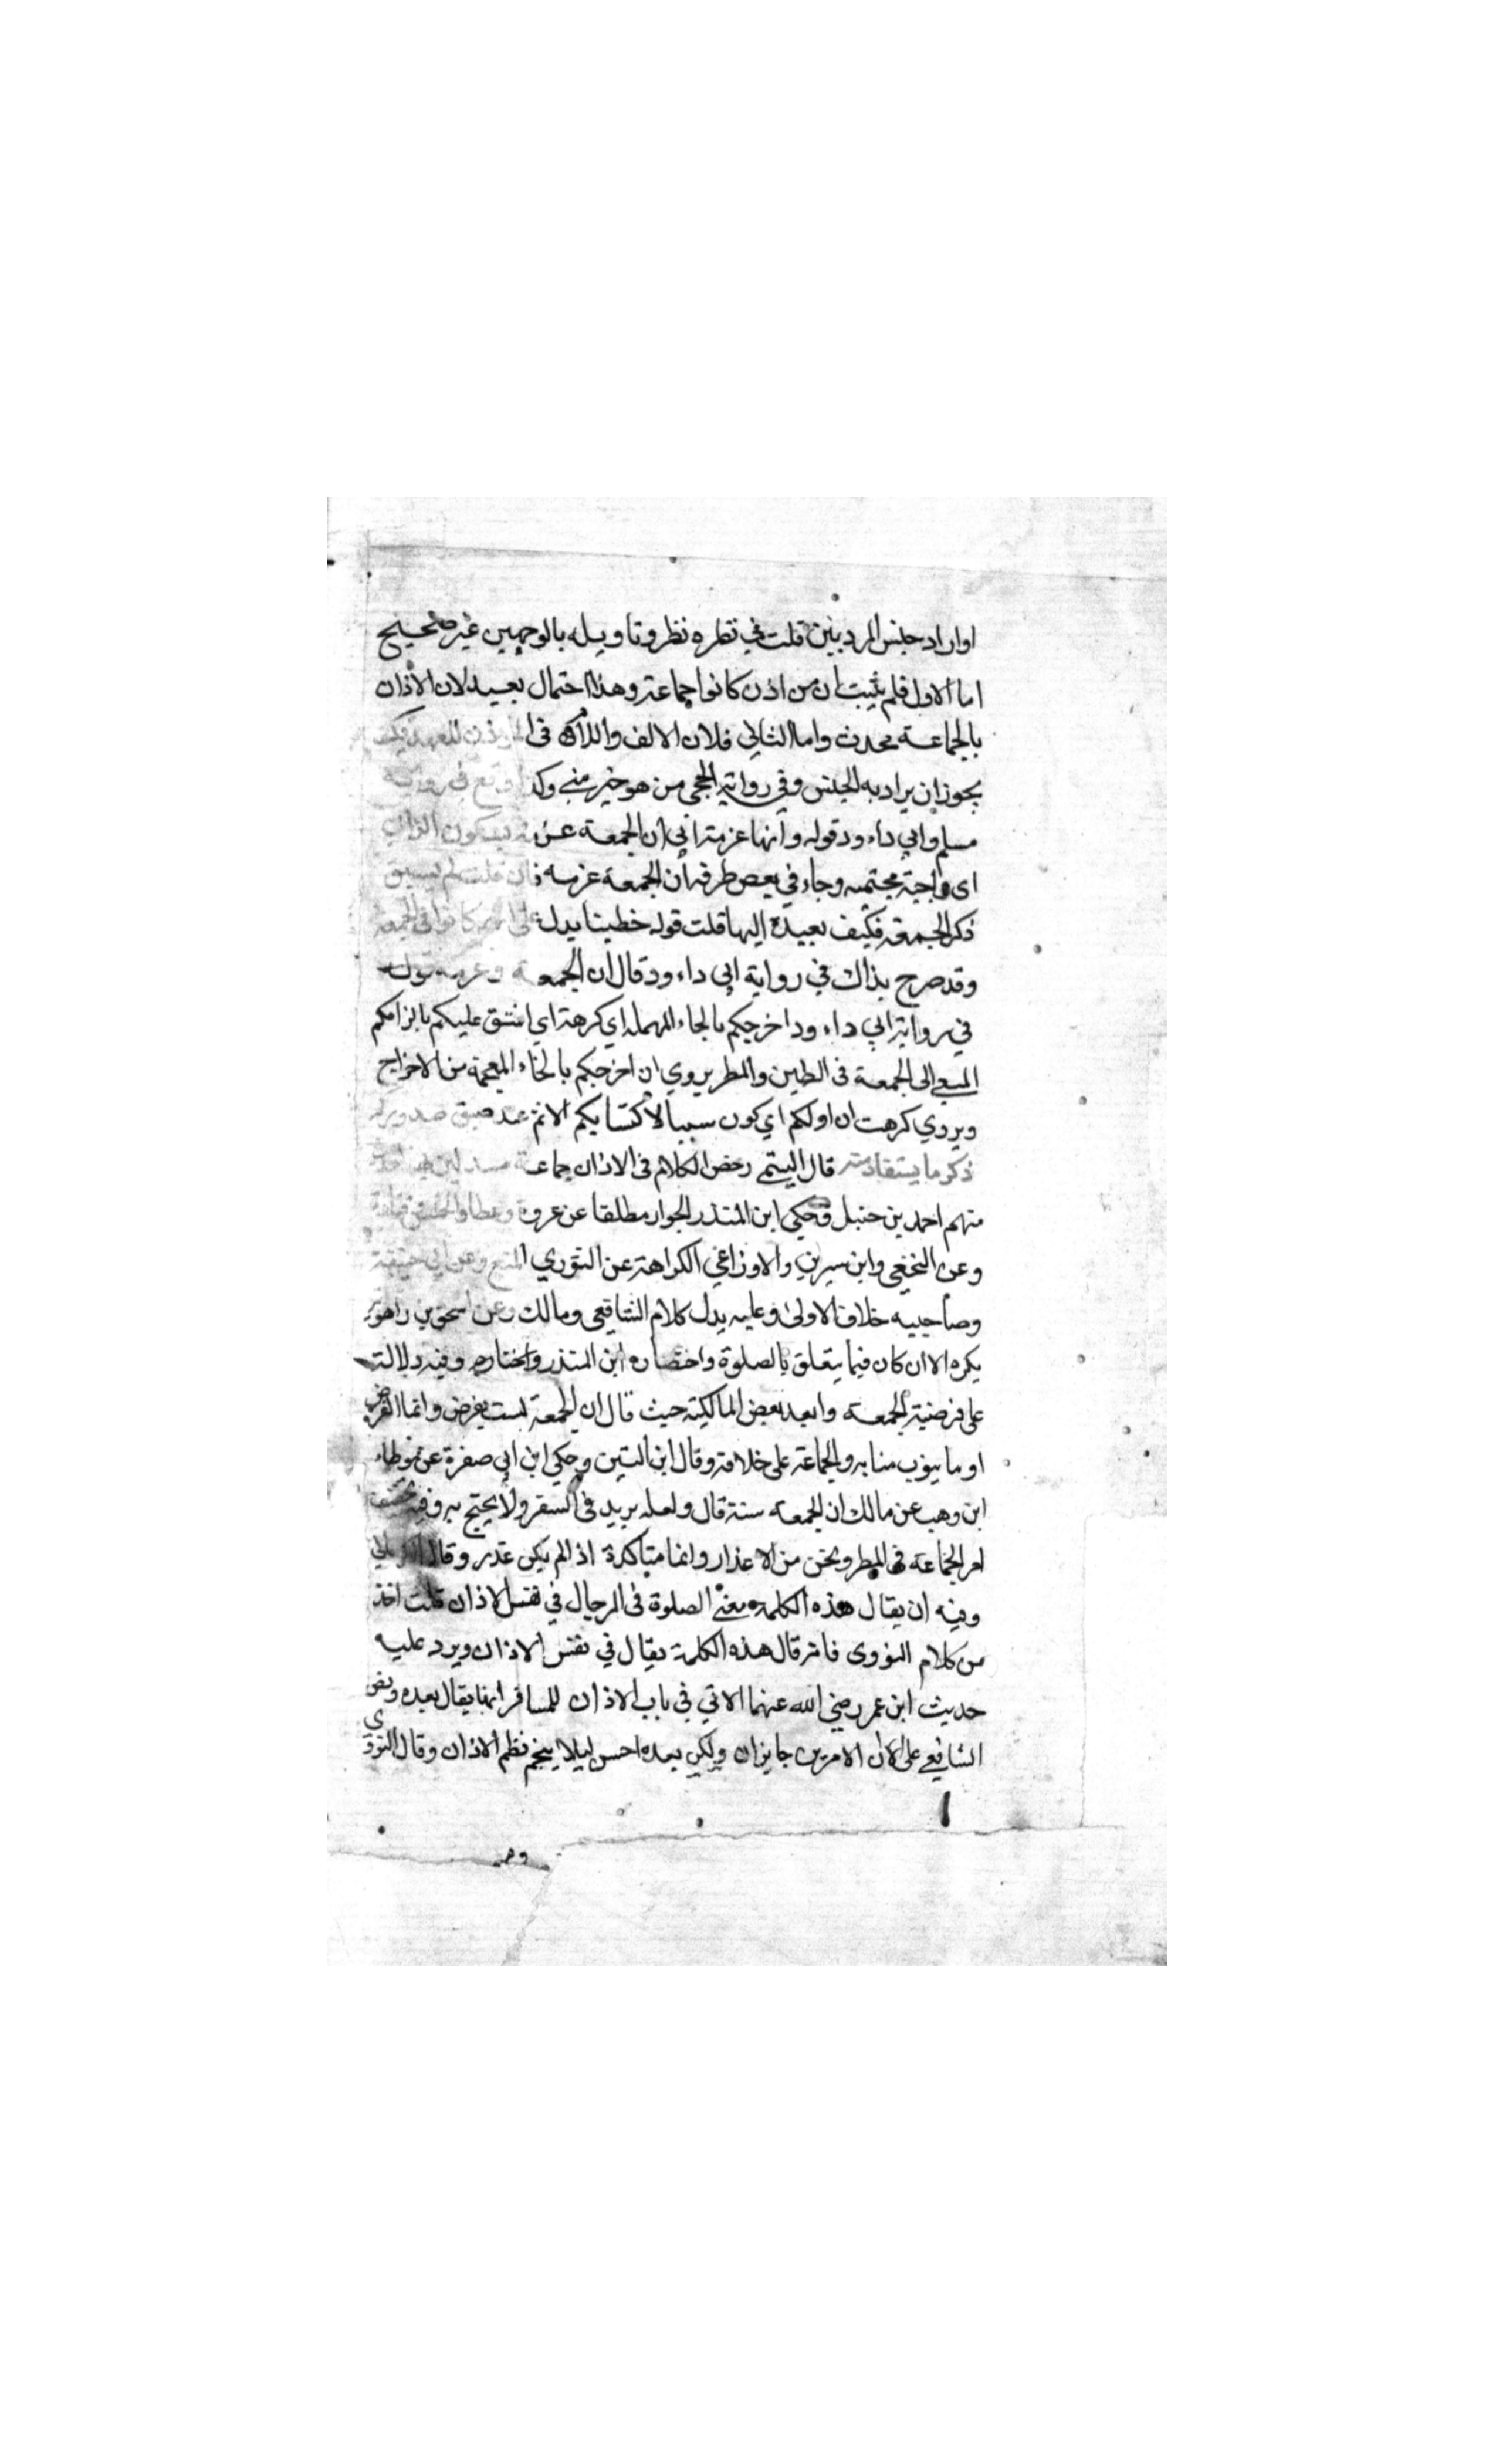 او اراد جنس المؤذنين قلت في نظره نظر وتاويله بالوجهين غير صحيح
اما الاول فلم يثبت ان من اذن كانوا جماعة وهذا احتمال بعيد لان الاذان
بالجماعة محدث واما الثاني فلان الالف واللام فى للعهد فكيف
يجوز ان يراد به الجنس وفي رواية الحجى من هو خير منى وكذا وقع في رواية
مسلم وابي داود قوله وانها عزمة اي ان الجمعة عزمة بسكون الزاي
اى واجبة متحتمه وجاء في بعض طرقه ان الجمعة عزمه فان قلت لم يسبق
ذكر الجمعة فكيف يعيده اليها قلت قوله خطبنا يدل على انهم كانوا في الجمعة
وقد صرح بذاك في رواية ابي داود وقال ان الجمعة عزمه قوله
في رواية ابي داود احرجكم بالحاء المهملة اي كرهت اي اشق عليكم بالزامكم
السعى الى الجمعة فى الطين والمطر يروي ان اخرجكم بالخاء المعجمة من الاخراج
ويروي كرهت ان اوثمكم اي كون سببا لاكتسابكم الاثم عند ضيق صدوركم
ذكر ما يستفاد منه قال التيمي رخص الكلام فى الاذان جماعة
منهم احمد بن حنبل وحكي ابن المنذر الجواز مطلقا عن عروة وعطا والحسن وقتادة
وعن النخعي وابن سيرين والاوزاعي الكراهة عن الثوري المنع وعن ابي حنيفة
وصاحبيه خلاف الاولى وعليه يدل كلام الشافعي ومالك وعن اسحق بن راهويه
يكره الا ان كان فيما يتعلق بالصلوة واختاره ابن المنذر وفيه دلالة
على فرضية الجمعة وابعد بعض المالكية حيث قال ان الجمعة ليست بفرض وانما الفرض
او ما ينوب منابه والجماعة على خلافه وقال ابن التين وحكي ابن ابي صفرة عن موطاء
ابن وهب عن مالك ان الجمعه سنة قال ولعله يريد فى السفر ولا يحتج به وفيه تخفيف
امر الجماعة فى المطر ونحوه من الاعذار وانها متاكدة اذا لم يكن عذر وقال
وفيه ان يقال هذه الكلمة يعنى الصلوة فى الرحال في نفس الاذان قلت اخذ
من كلام النووى فانه قال هذه الكلمة يقال في نفس الاذان ويرد عليه
حديث ابن عمر رضي الله عنهما الاتي في باب الاذان للمسافر انها يقال بعده ونص
الشافعي على ان الامرين جايزان ولكن بعده احسن ليلا ينخرم نظم الاذان وقال النووى